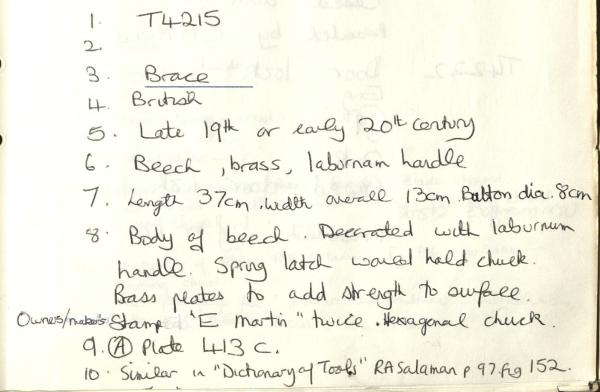 1. T4215
2.
3. Brace
4. British
5. Late 19th or early 20th century
6. Beech, brass, laburnam handle
7. Length 37cm. Width overall 13cm. Button dia. 8cm
8. Body of beech. Decorated with laburnum
handle. Spring latch would hold chuck.
Brass plates to add strength to surface.
Owners/makers Stamp 'E Martin" twice. Hexagonal chuck.
9. Ⓐ Plate 413 C.
10. Similar in "Dictionary of Tools" RA Salaman p 97. fig 152.